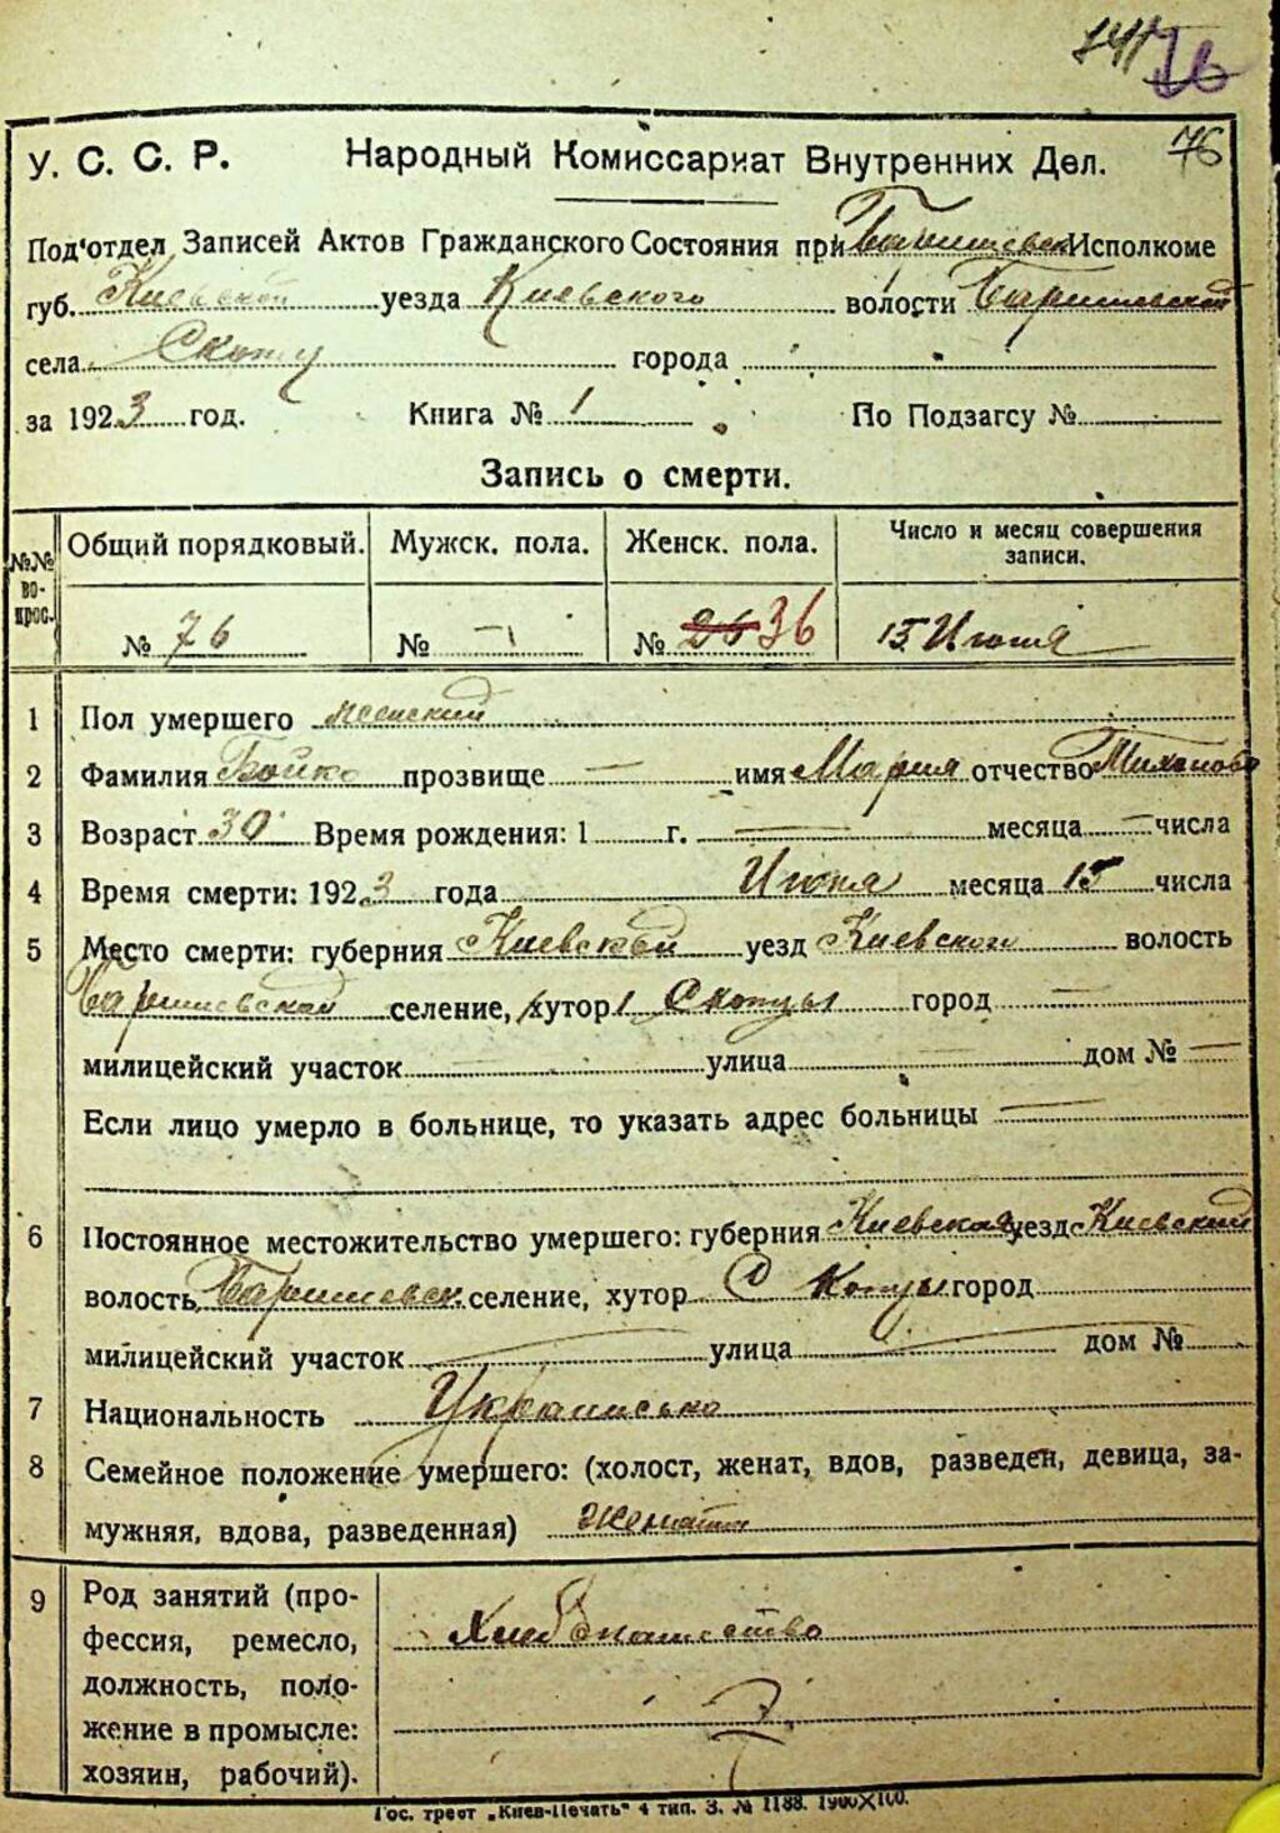 141 76
76
У. С. С. Р. Народный Комиссариат Внутренних Дел.
Под'отдел Записей Актов Гражданского Состояния при Баришевск Исполкоме
губ. Киевской уезда Киевского волости Баришевской
села Скопц города
за 1923 год. Книга № 1 По Подзагсу №
Запись о смерти.
№№ вопрос. Общий порядковый. Мужск. пола. Женск. пола. Число и месяц совершения записи.
№ 76 № — № 26 36 15 Июня
1 Пол умершего женский
2 Фамилия Бойко прозвище — имя Мария отчество
3 Возраст 30 Время рождения: 1 г. — месяца — числа
4 Время смерти: 1923 года Июня месяца 15 числа
5 Место смерти: губерния Киевской уезд Киевского волость
Баришевской селение, хутор Скопцы город —
милицейский участок — улица — дом № —
Если лицо умерло в больнице, то указать адрес больницы —
6 Постоянное местожительство умершего: губерния Киевская уезд Киевский
волость Баришевск. селение, хутор Скопцы город
милицейский участок — улица — дом №
7 Национальность Украинська
8 Семейное положение умершего: (холост, женат, вдов, разведен, девица, за-
мужняя, вдова, разведенная) жената
9 Род занятий (про-
фессия, ремесло,
должность, поло-
жение в промысле:
хозяин, рабочий).
Гос. трест „Киев-Печать" 4 тип. З. № 1188. 1900X100.